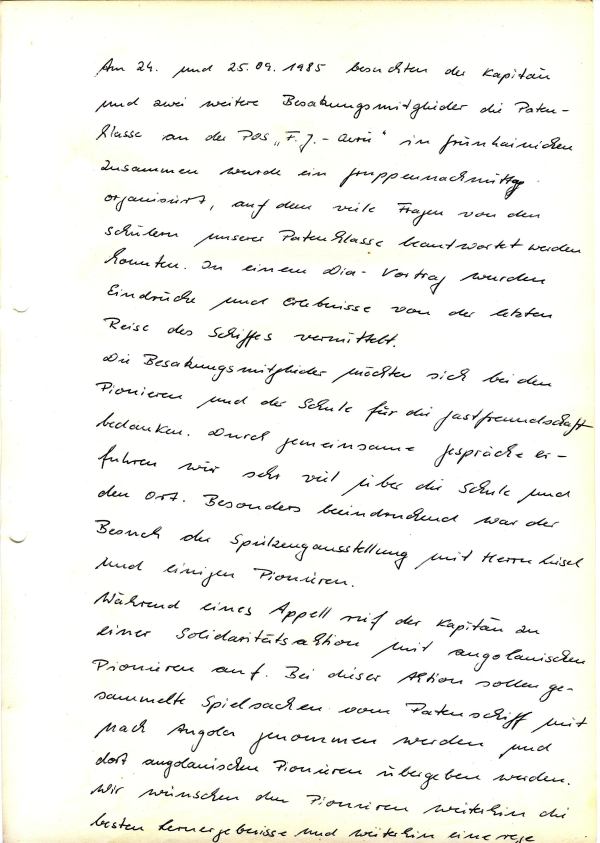 Am 24. und 25.09.1985 besuchten der Kapitän
und zwei weitere Besatzungsmitglieder die Paten-
klasse an der POS „F. J.- Curie" in Grünhainichen
Zusammen wurde ein Gruppennachmittag
organisiert, auf dem viele Fragen von den
Schülern unserer Patenklasse beantwortet werden
konnten. In einem Dia- Vortrag wurden
Eindrücke und Erlebnisse von der letzten
Reise des Schiffes vermittelt.
Die Besatzungsmitglieder möchten sich bei den
Pionieren und der Schule für die Gastfreundschaft
bedanken. Durch gemeinsame Gespräche er-
fuhren wir sehr viel über die Schule und
den Ort. Besonders beeindruckend war der
Besuch der Spielzeugausstellung mit Herrn
und einigen Pionieren.
Während eines Appell rief der Kapitän zu
einer Solidaritätsaktion mit angolanischen
Pionieren auf. Bei dieser Aktion sollen ge-
sammelte Spielsachen vom Patenschiff mit
nach Angola genommen werden und
dort angolanischen Pionieren übergeben werden.
Wir wünschen den Pionieren weiterhin die
besten Lernergebnisse und weiterhin eine rege